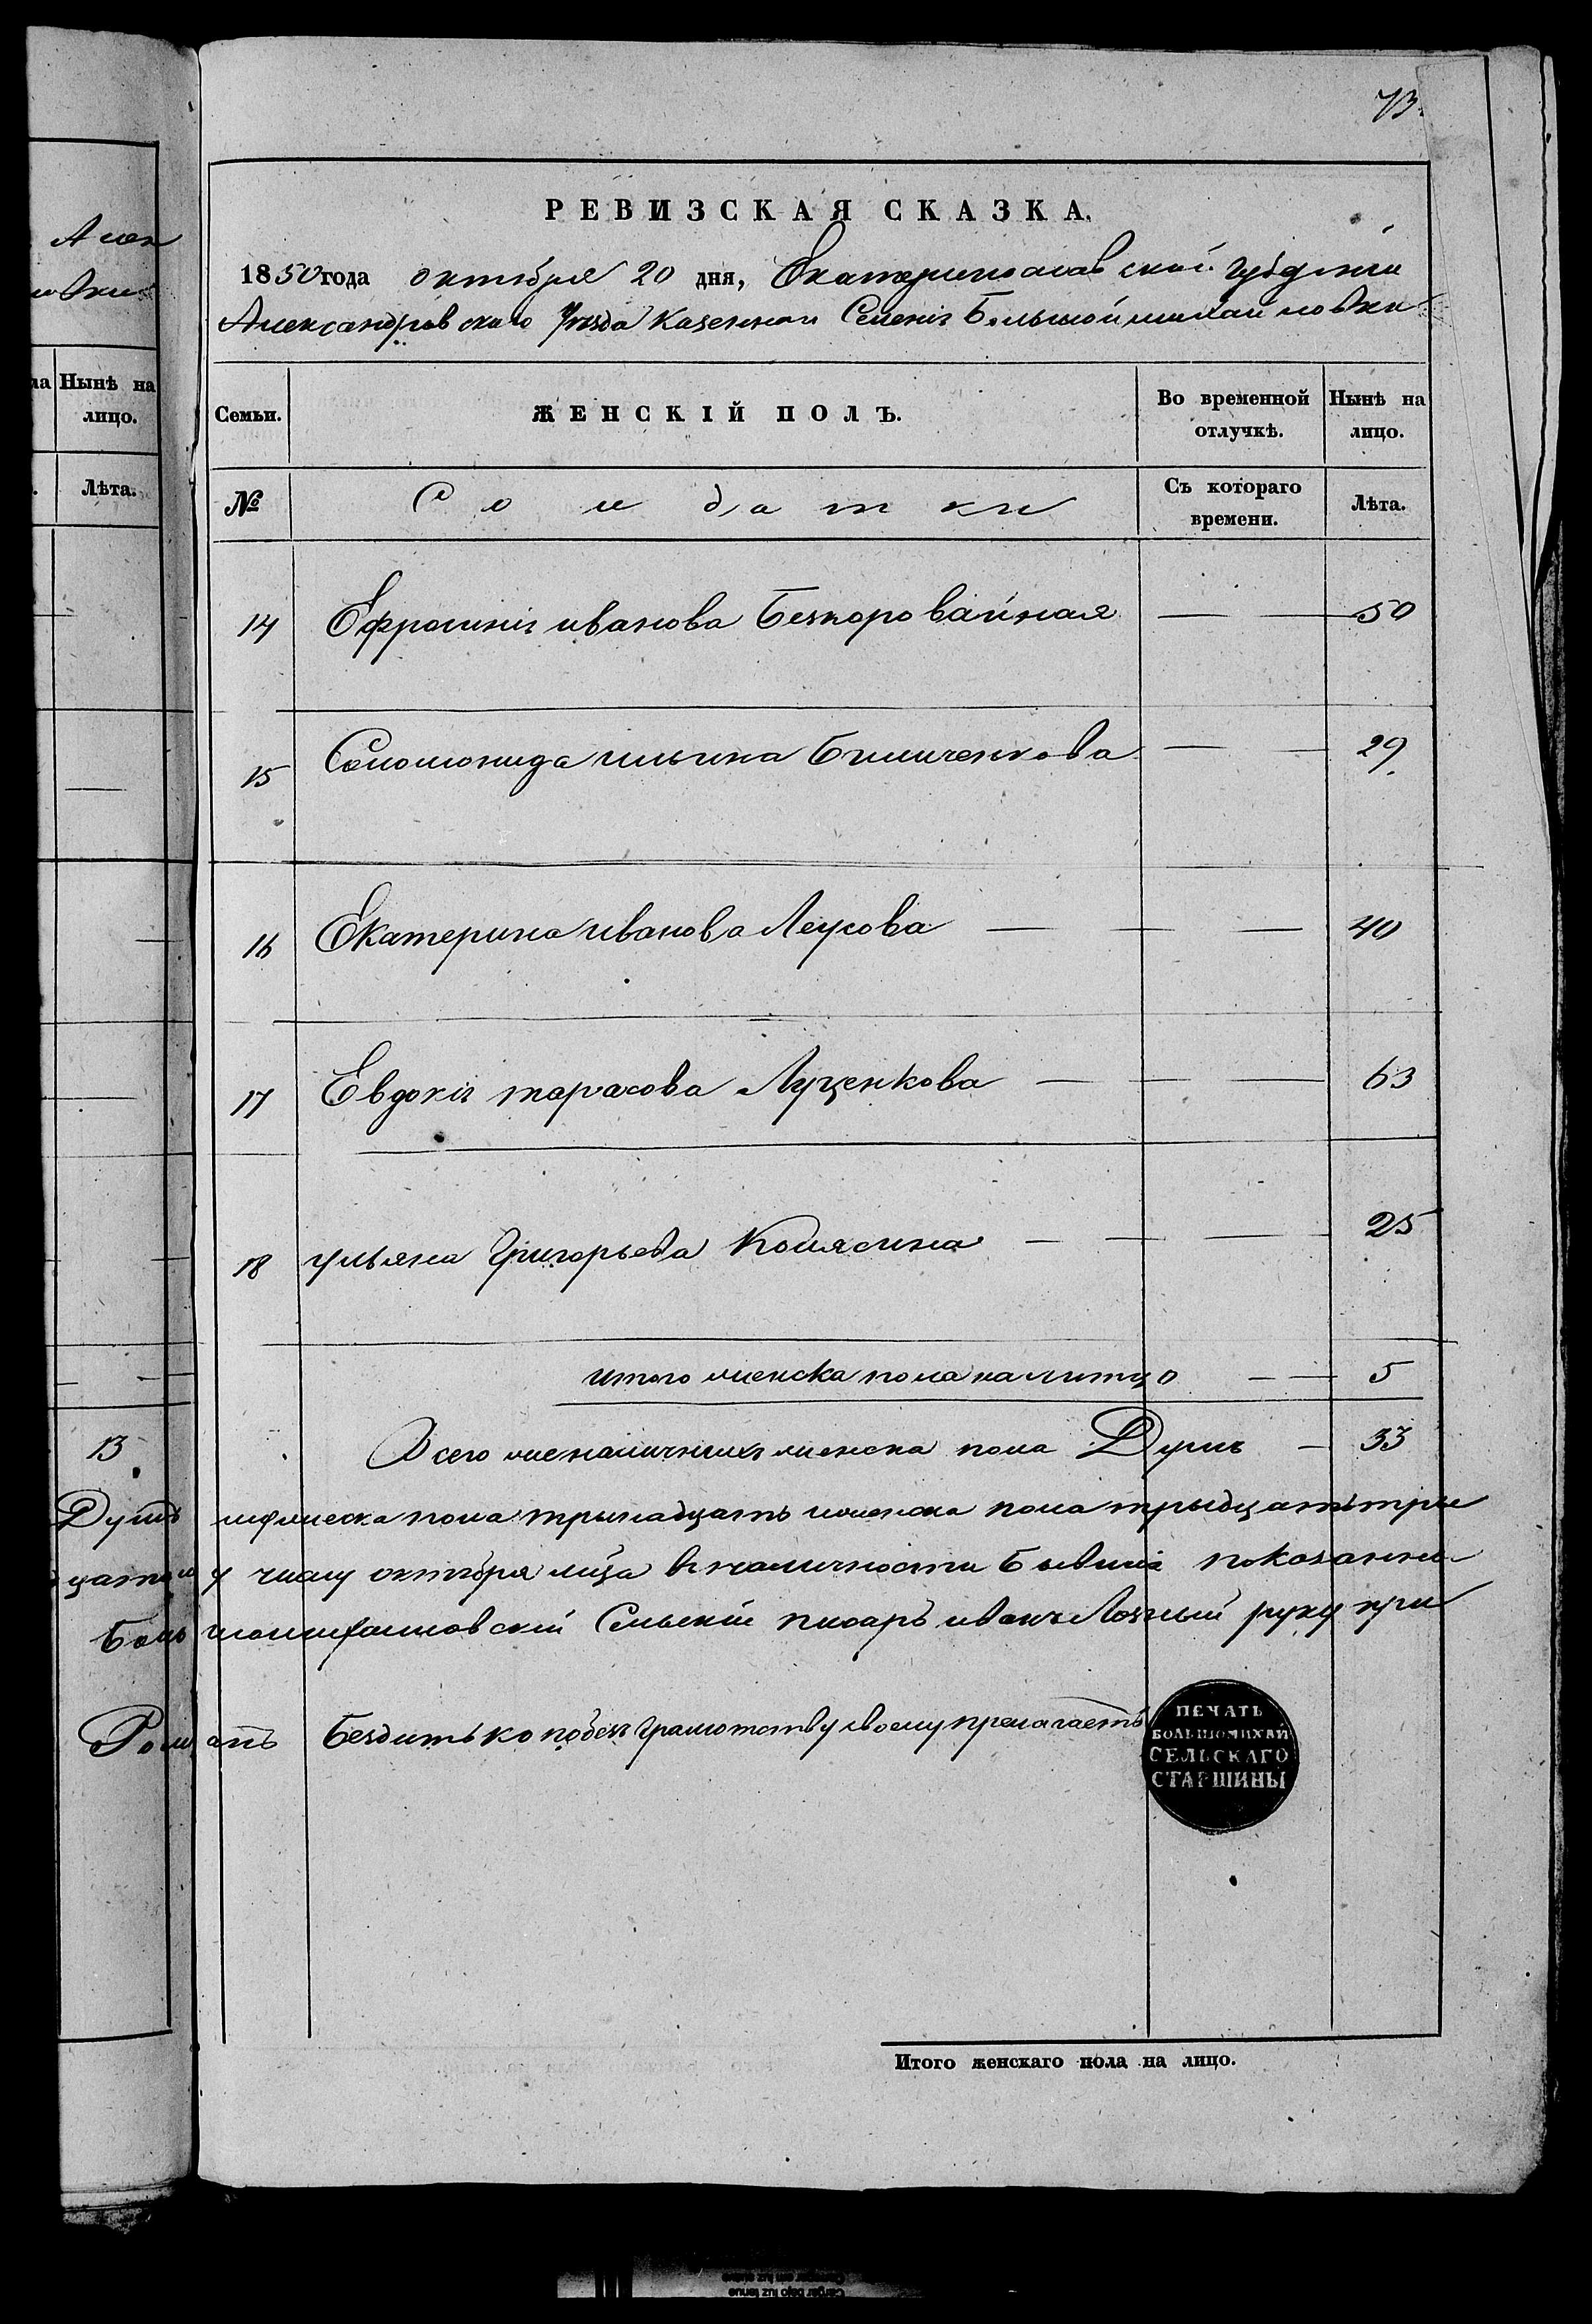 73.
РЕВИЗСКАЯ СКАЗКА.
1850 года октября 20 дня, Екатеринославской губерніи
Александровскаго Уезда Казеннаи Селенія Большоймихайловки
Семьи. ЖЕНСКІЙ ПОЛЪ. Во временной отлучкѣ. Нынѣ на лицо.
№ Солдатки Съ котораго времени. Лѣта.
14 Ефросинія иванова Безкоровайная — — 50
15 Соломонида ильина Биличенкова — — 29.
16 Екатерина иванова Леусова — — — 40
17 Евдокія тарасова Луценкова — — — 63
18 ульяна Григорьева Колясина — — — 25
итого женска пола налитцо — — 5
Всего женска пола Душъ — 33
пола тринадцать женска пола тридцать три
числу октября в наличности Бывшіе
Сельскій писарь иванъ руку при
Бездитько
ПЕЧАТЬ
БОЛЬШОМИХАЙ
СЕЛЬСКАГО
СТАРШИНЫ
Итого женскаго пола на лицо.
Алек
Нынѣ на
лицо.
Лѣта.
13
Душъ
Боль
Ром